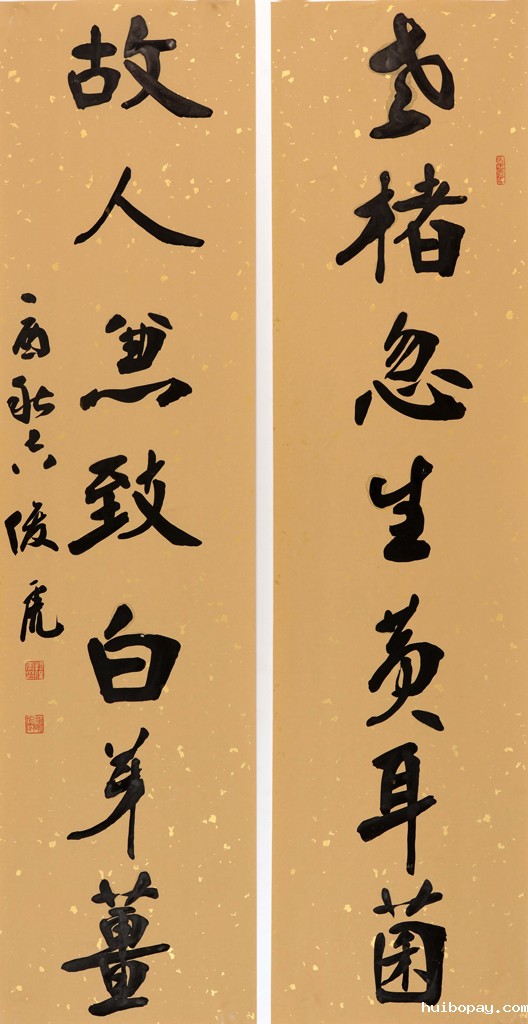 老楮忽生黄耳菌
故人兼致白芽薑
酉秋俊虎
huibopay.com